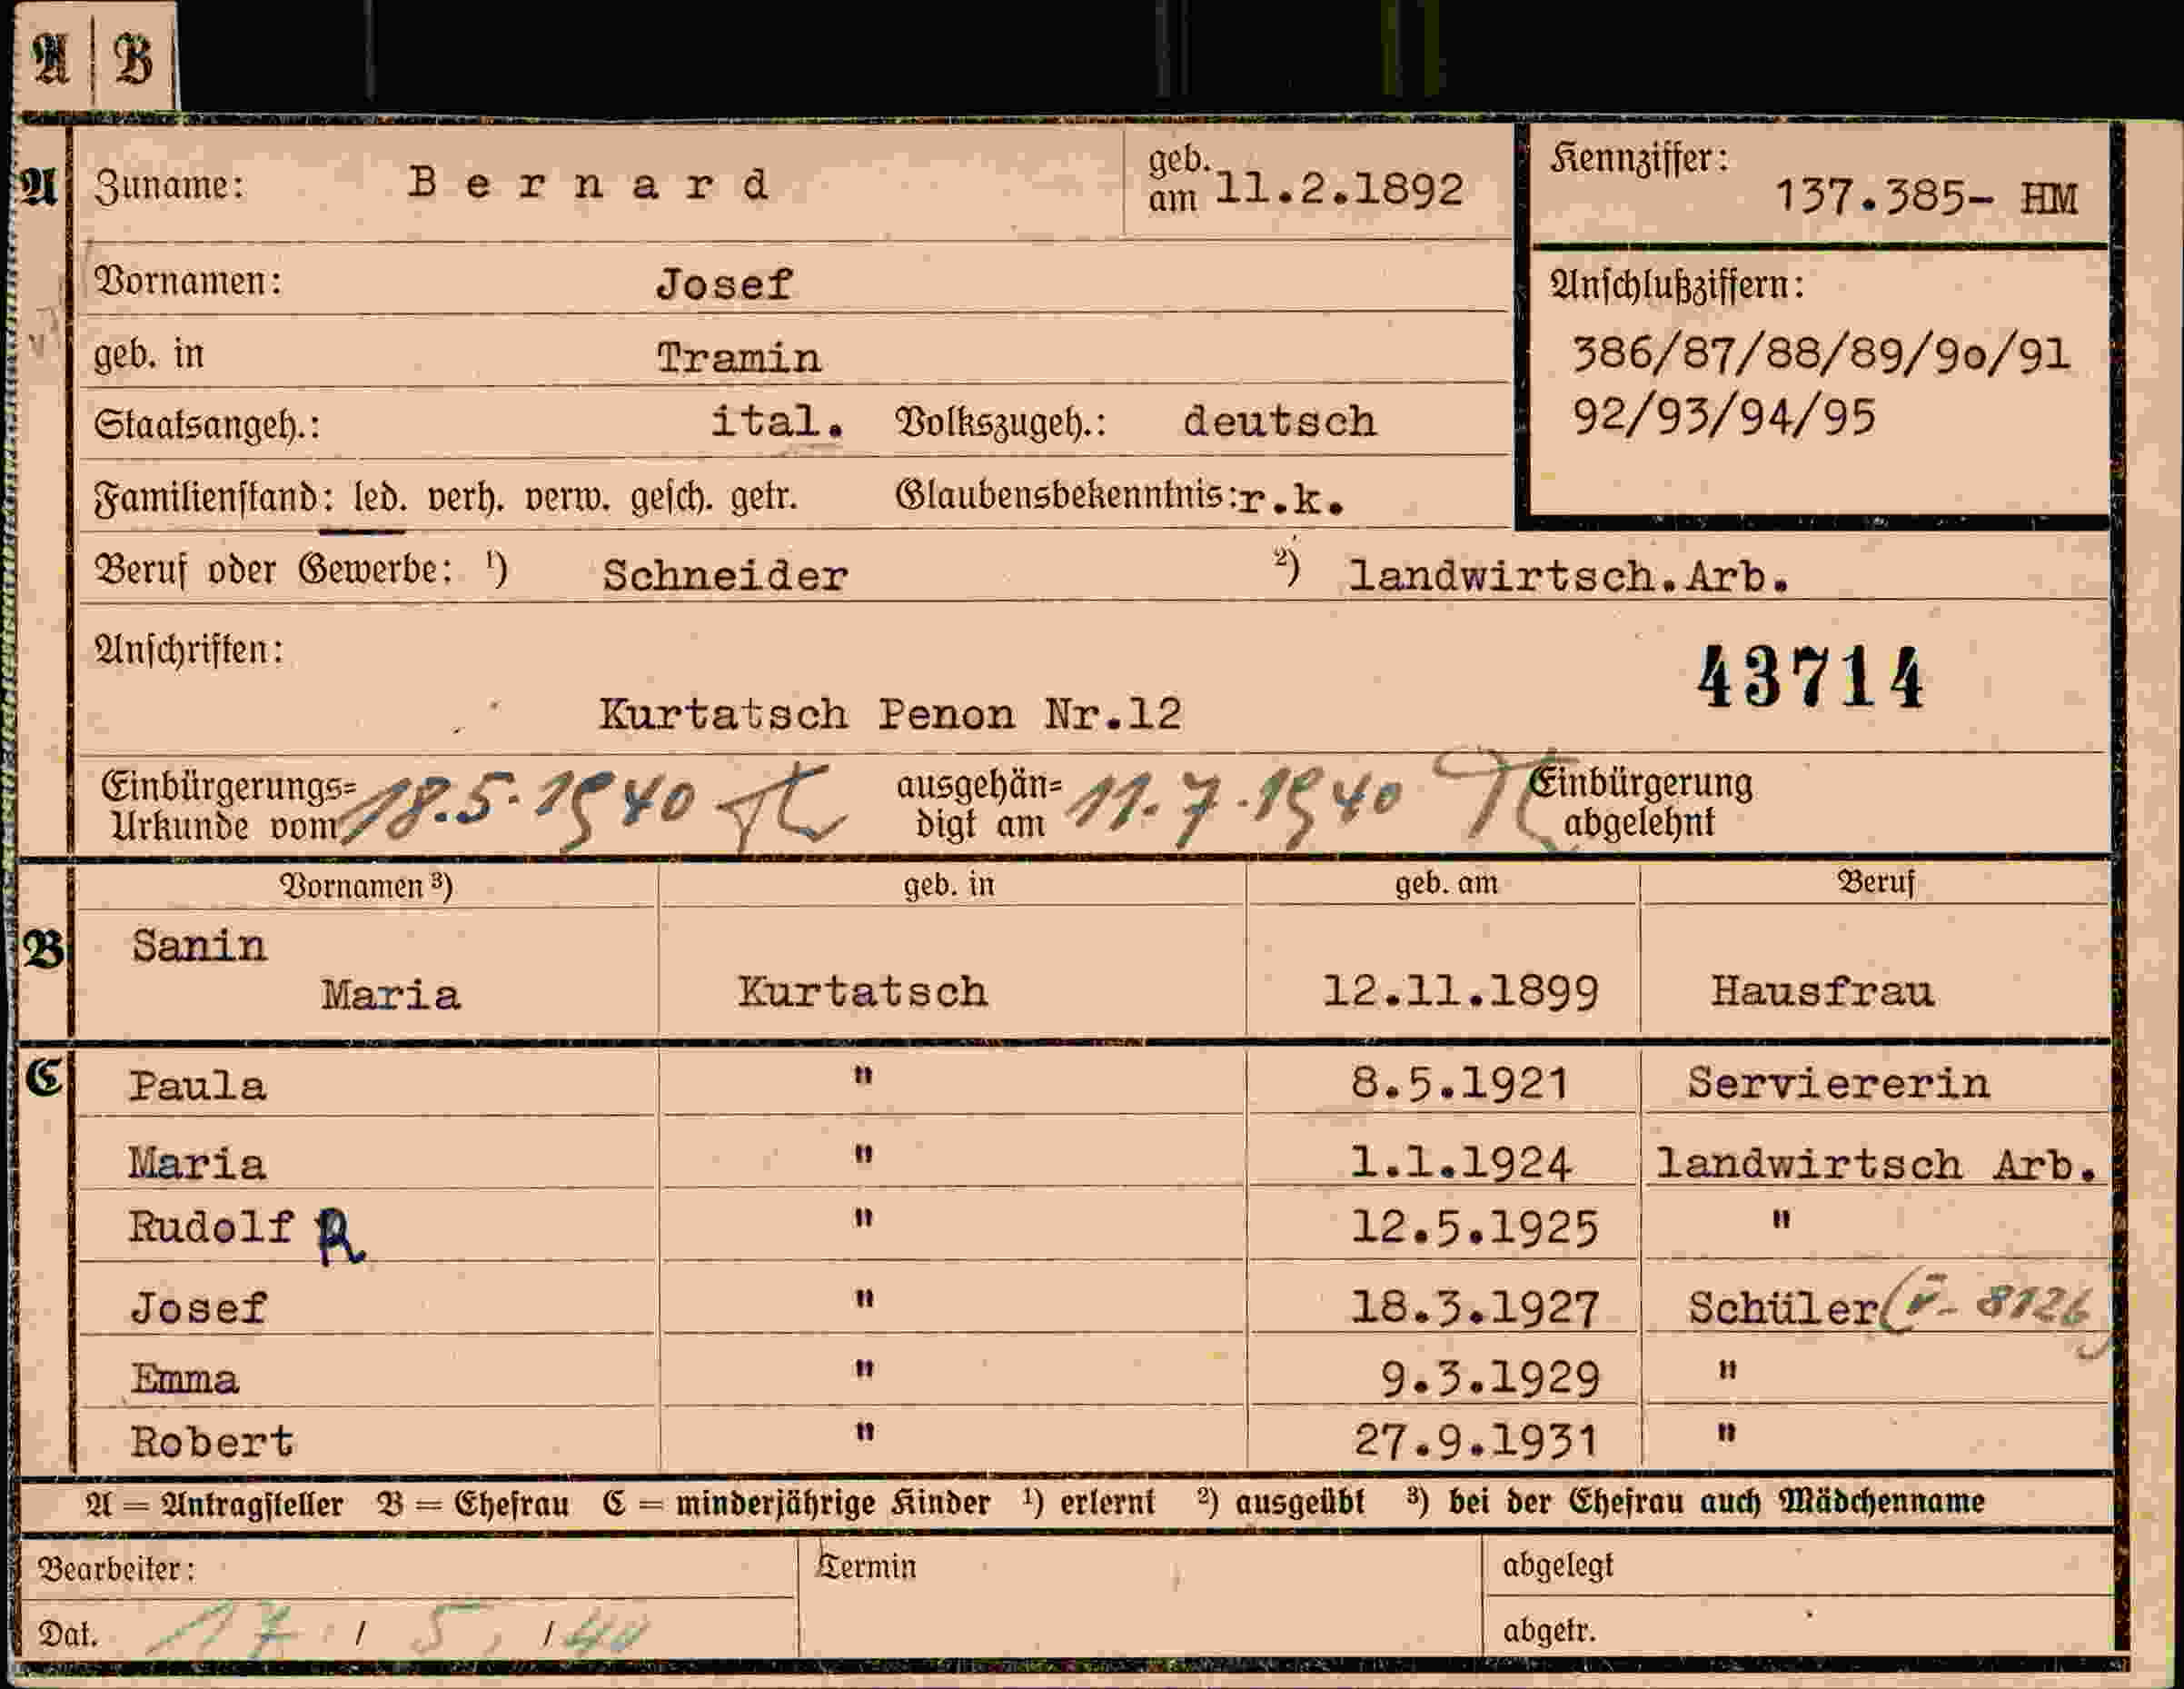 A B
A Zuname: Bernard geb. am 11.2.1892 Kennziffer: 137.385- HM
Vornamen: Josef
Anschlußziffern:
geb. in Tramin
386/87/88/89/90/91
Staatsangeh.: ital. Volkszugeh.: deutsch
92/93/94/95
Familienstand: led. verh. verw. gesch. getr. Glaubensbekenntnis: r.k.
Beruf oder Gewerbe: 1) Schneider 2) landwirtsch.Arb.
Anschriften:
43714
Kurtatsch Penon Nr.12
Einbürgerungs= Urkunde vom 18.5.1940 ausgehän= digt am 11.7.1940 Einbürgerung abgelehnt
Vornamen 3) geb. in geb. am Beruf
B Sanin
Maria Kurtatsch 12.11.1899 Hausfrau
C Paula " 8.5.1921 Serviererin
Maria " 1.1.1924 landwirtsch Arb.
Rudolf R " 12.5.1925 "
Josef " 18.3.1927 Schüler
Emma " 9.3.1929 "
Robert " 27.9.1931 "
A = Antragsteller B = Ehefrau C = minderjährige Kinder 1) erlernt 2) ausgeübt 3) bei der Ehefrau auch Mädchenname
Bearbeiter: Termin abgelegt
Dat. 17 / 5. / 40 abgetr.